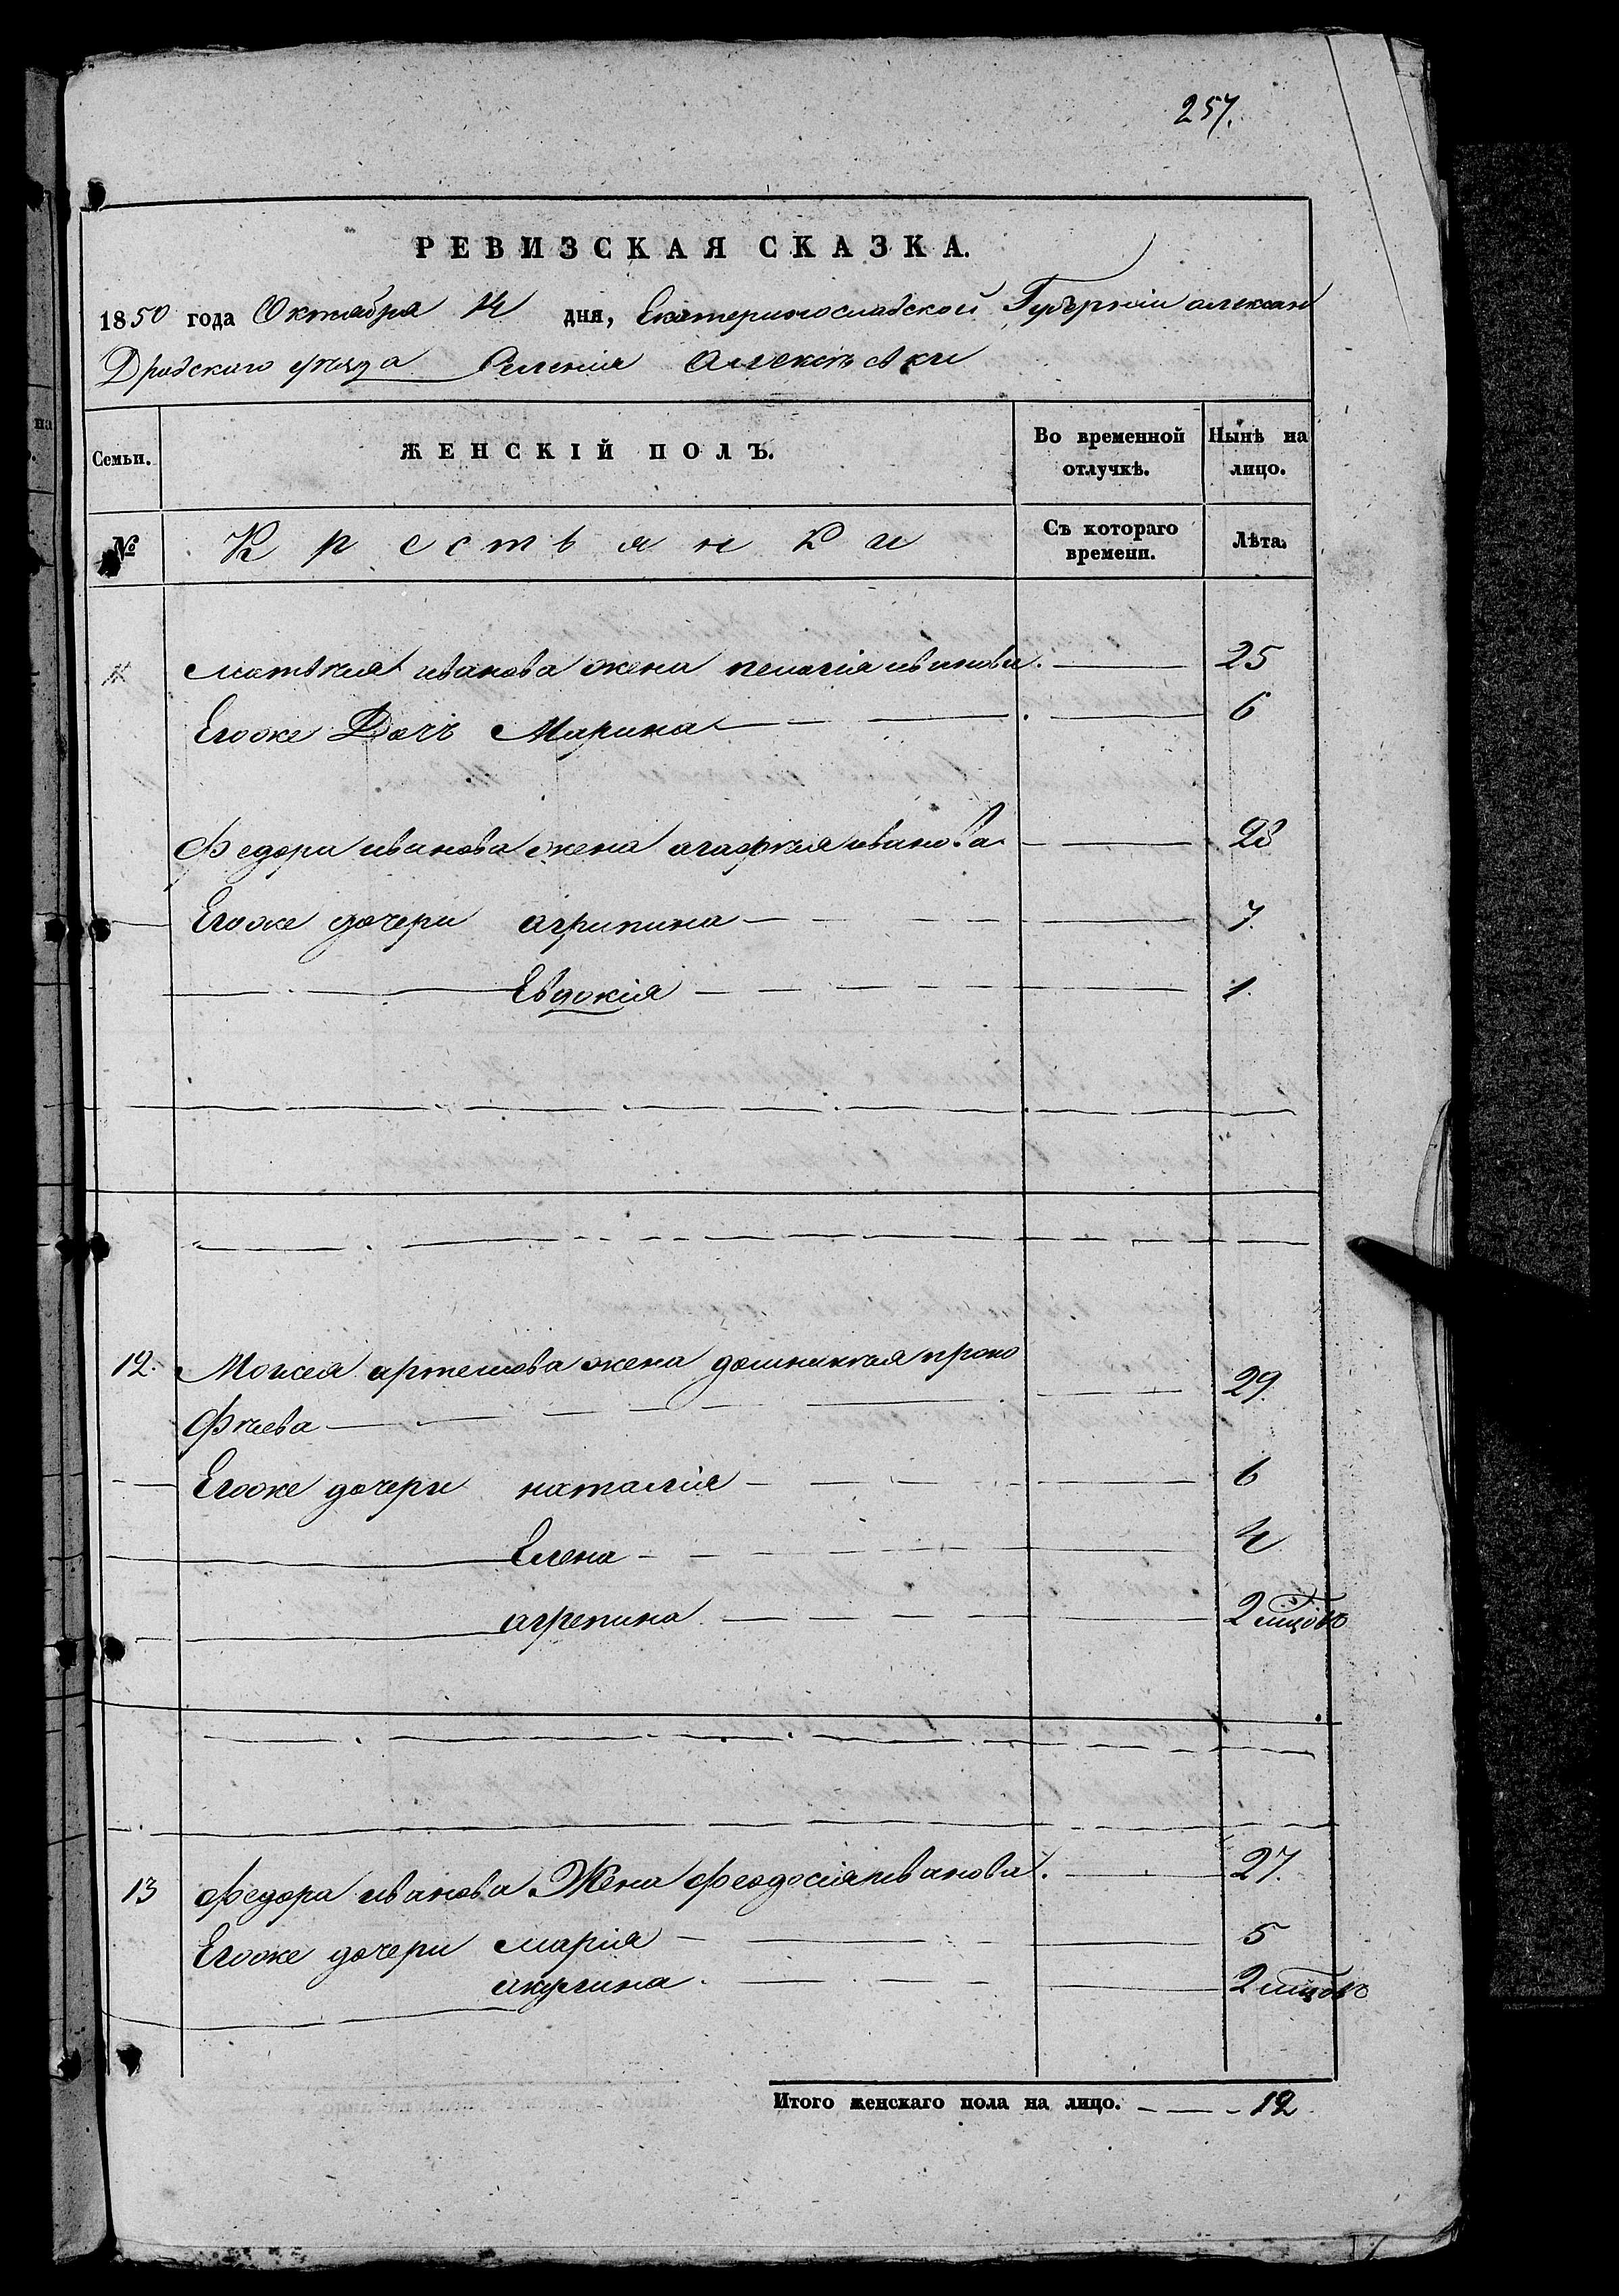 257.
РЕВИЗСКАЯ СКАЗКА.
1850 года Октября 14 дня, Екатеринославской Губернии алексан
Дровскаго уезда Селения Алексеевки
Семьи. ЖЕНСКІЙ ПОЛЪ. Во временной отлучкѣ. Нынѣ на лицо.
№ Крестьянки Съ котораго времени. Лѣта.
Матвея иванова жена пелагія иванова. 25
Егоже Дочъ Марина 6
Федора иванова жена агафия иванова 28
Егоже дочери агрипина 7.
Евдокія 1.
12. Моисея артемова жена домникия проко 29.
Фиева
Егоже дочери наталія 6
Елена 4
агрепина 2 мцовъ
13 Федора иванова Жена феодосия иванова. 27.
Егоже дочери марія 5
акулина. 2 мцовъ
Итого женскаго пола на лицо. 12